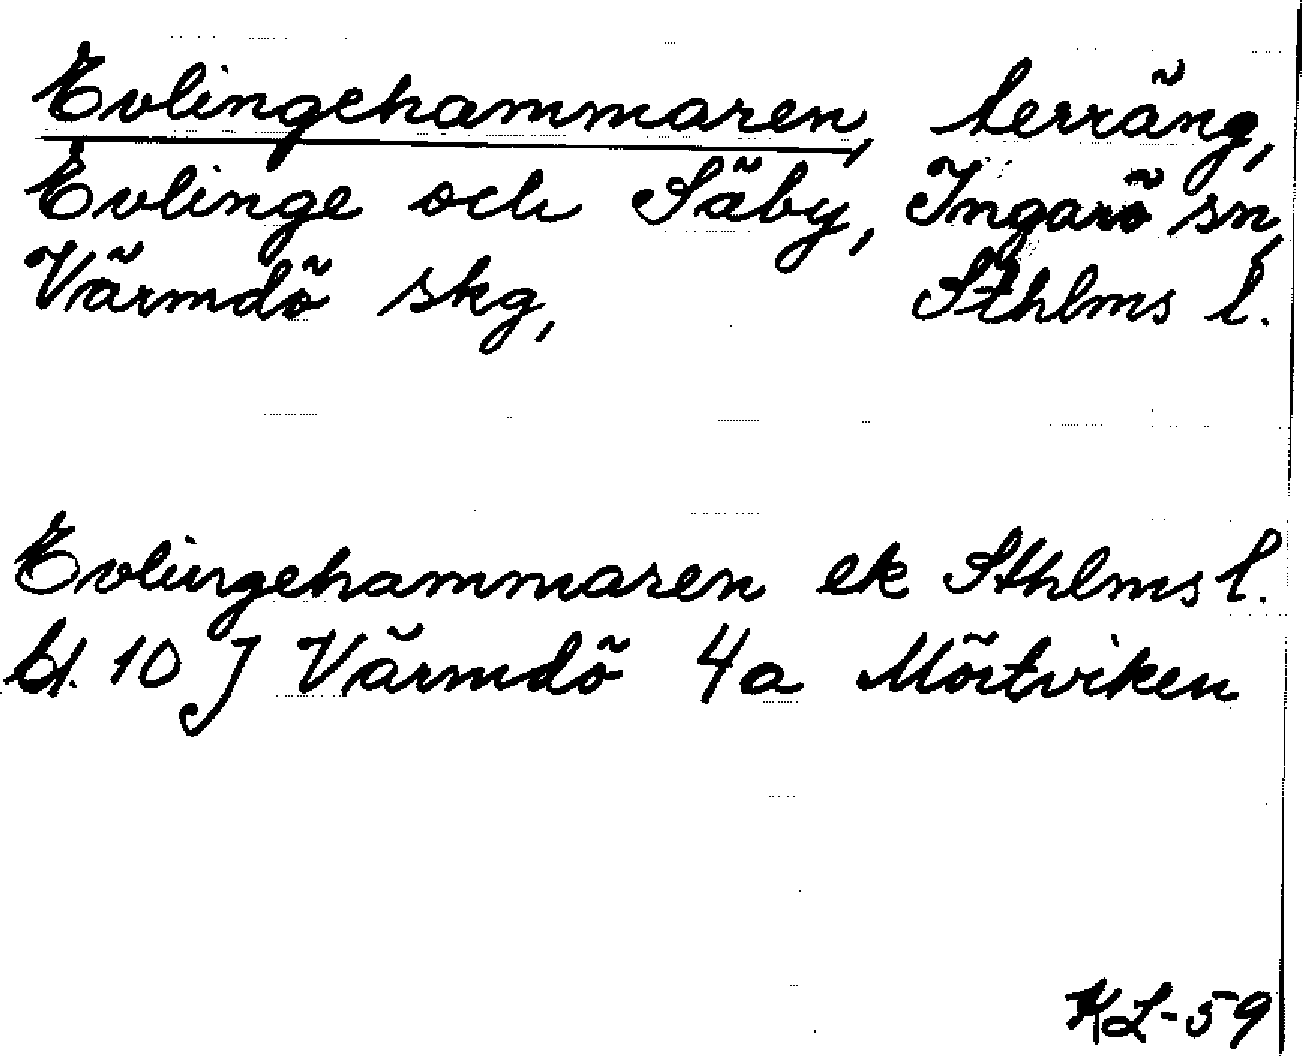 Evlingehammaren, terräng,
Evlinge och Säby, Ingarö sn,
Värmdö skg, Sthlms l.
Evlingehammaren ek Sthlms l.
bl. 10 J Värmdö 4a Mörtviken
KL-59